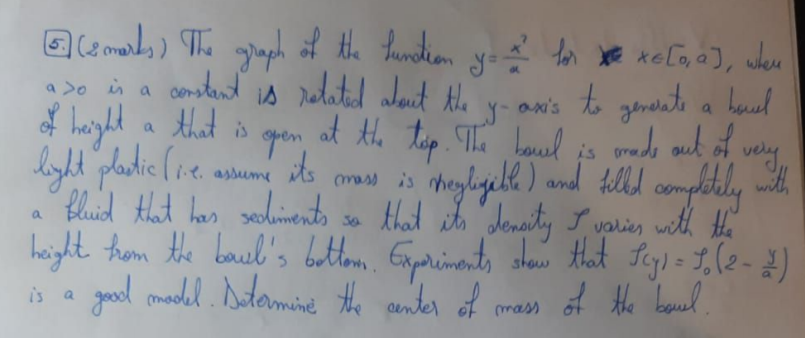 5. (2 marks) The graph of the function y = x²/a for x∈[0,a], where
a>0 is a constant is rotated about the y-axis to generate a bowl
of height a that is open at the top. The bowl is made out of very
light plastic (i.e. assume its mass is negligible) and filled completely with
a fluid that has sediments so that its density ρ varies with the
height from the bowl's bottom. Experiments show that ρ(y) = ρ₀(2 - y/a)
is a good model. Determine the center of mass of the bowl.